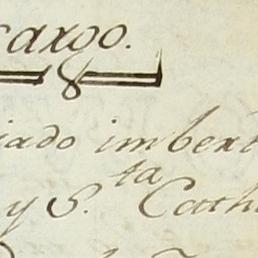 cargo.
iado imbert
y S.ta Cath